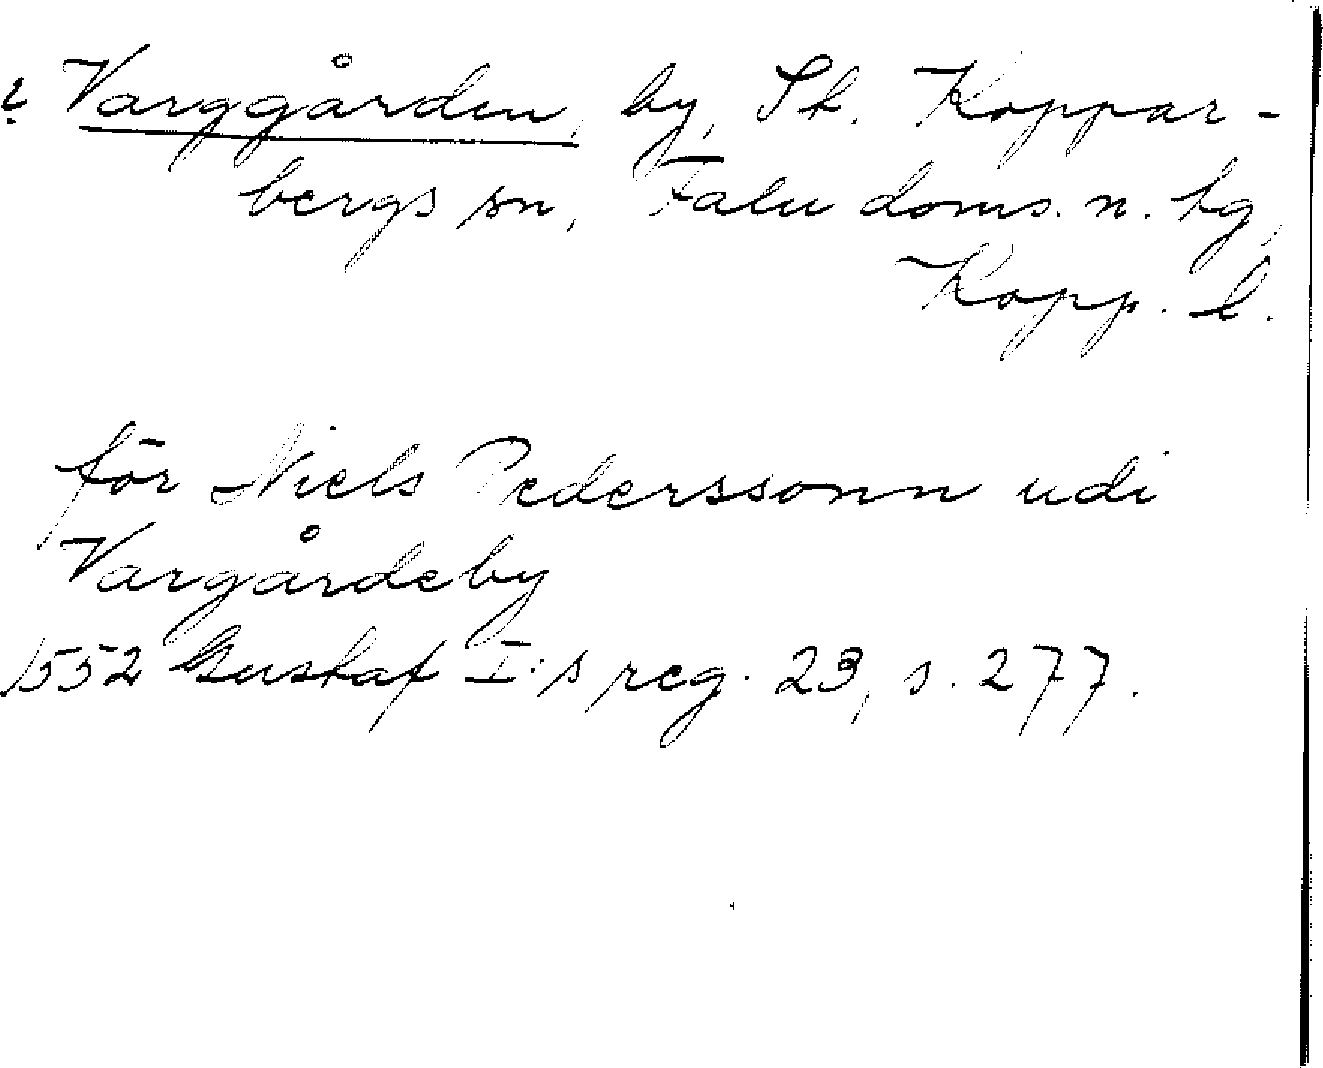 ? Varggården, by, St. Koppar-
bergs sn, Falu doms. n. tg,
Kopp. l.
för Niels Pederssonn udi
Vargårdeby
1552 Gustaf I:s reg. 23, s. 277.